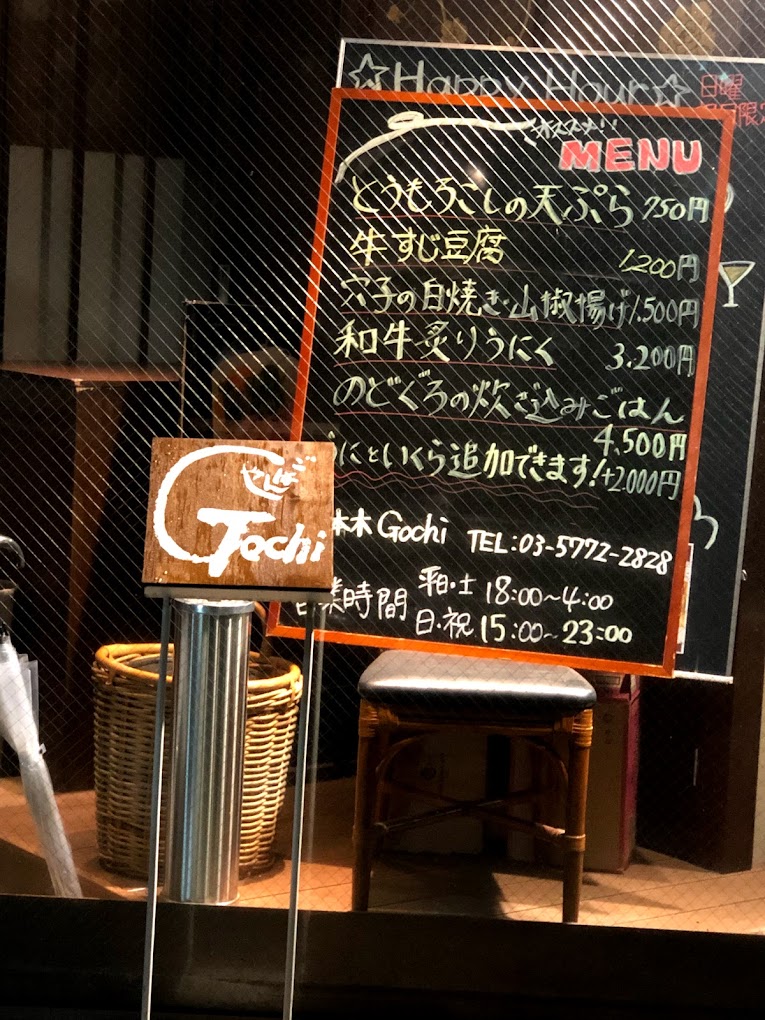 ☆Happy Hour☆
日曜
オススメ!!
MENU
とうもろこしの天ぷら 750円
牛すじ豆腐 1,200円
穴子の白焼き・山椒揚げ 1,500円
和牛炙りうにく 3,200円
のどぐろの炊き込みごはん
4,500円
にといくら追加できます!+2,000円
木 Gochi TEL:03-5772-2828
業時間 平日・土 18:00~4:00
日・祝 15:00~23:00
やしほご
Gochi